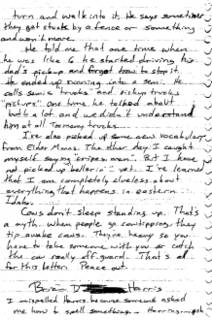 turn and walk into it. He says sometimes
they get stuck by a fence or something
and won't move.
He told me that one time when
he was like 6 he started driving his
dad's pickup and forgot how to stop it.
He ended up running into a semi. He
calls semis "trucks" and pickup trucks
"pickups". One time he talked about
both a lot and we didn't understand
him at all. Too many trucks.
I've also picked up some new vocabulary
from Elder Mines. The other day I caught
myself saying "cripes man". But I have
not picked up yet. I've learned
that I am completely clueless about
everything that happens in eastern
Idaho.
Cows don't sleep standing up. That's
a myth. When people go cowtipping, they
tip awake cows. They're heavy so you
have to take someone with you or catch
the cow really off guard. That's all
for this letter. Peace out
Harris
I mispelled Harris because someone asked
me how to spell something.